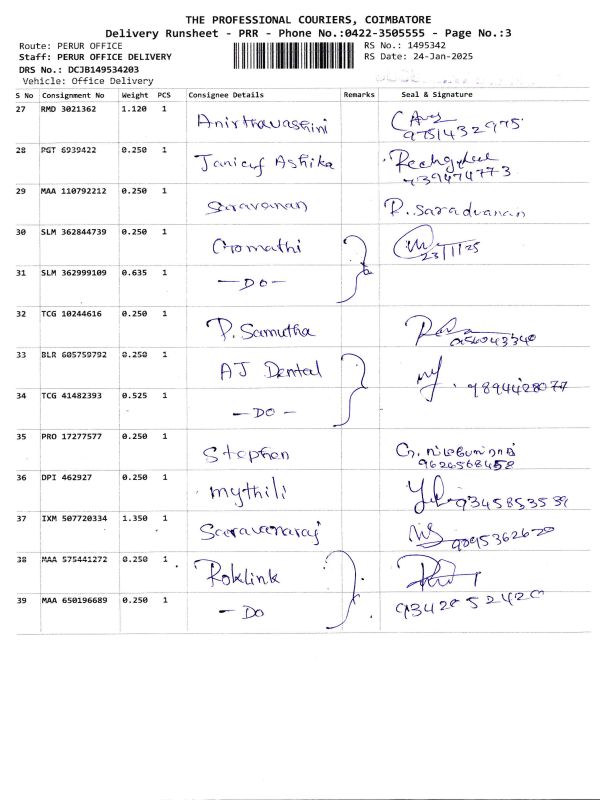 THE PROFESSIONAL COURIERS, COIMBATORE
Delivery Runsheet - PRR - Phone No.:0422-3505555 - Page No.:3
Route: PERUR OFFICE RS No.: 1495342
Staff: PERUR OFFICE DELIVERY RS Date: 24-Jan-2025
DRS No.: DCJB149534203
Vehicle: Office Delivery
S No Consignment No Weight PCS Consignee Details Remarks Seal & Signature
27 RMD 3021362 1.120 1 Anirthavashini
9751432975
28 PGT 6939422 0.250 1 Ashika
739474773
29 MAA 110792212 0.250 1 Saravanan P. Saradvanan
30 SLM 362844739 0.250 1 Gomathi
23/1/25
31 SLM 362999109 0.635 1 - DO -
32 TCG 10244616 0.250 1 P. Samutha
33 BLR 605759792 0.250 1 AJ Dental
9894428077
34 TCG 41482393 0.525 1 - DO -
35 PRO 17277577 0.250 1 Stephen
9626568458
36 DPI 462927 0.250 1 mythili
9345853539
37 IXM 507720334 1.350 1 Saravanaraj
9095362620
38 MAA 575441272 0.250 1 Roklink
39 MAA 650196689 0.250 1 - DO
9342052420